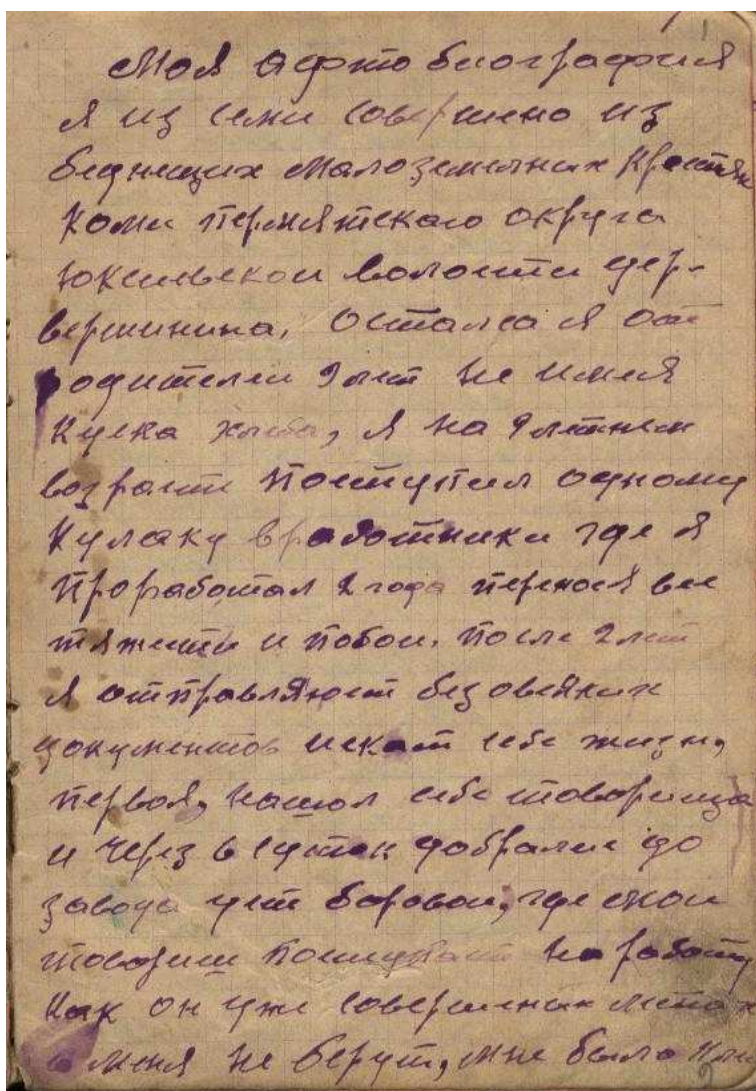 Моя афтобиография
я из семи совершено из
беднещих малоземелних крестян
Коми пермятского округа
юксиевскои волости дер-
вершинина, Осталса я от
родителеи 9 лет не имея
куска хлеба, я на 9 летнем
возрасте поступил одному
кулаку вработники где я
проработал 2 года перенося все
тяжести и побои. После 2 лет
я отправляюст без овсяких
документов искат себе жизн,
первоя, нашол себе товарища
и через 6 суток добралис до
завода уст боровои, где мои
товарищ поступает на работу
как он уже совершенних лет
а меня не берут, мне было